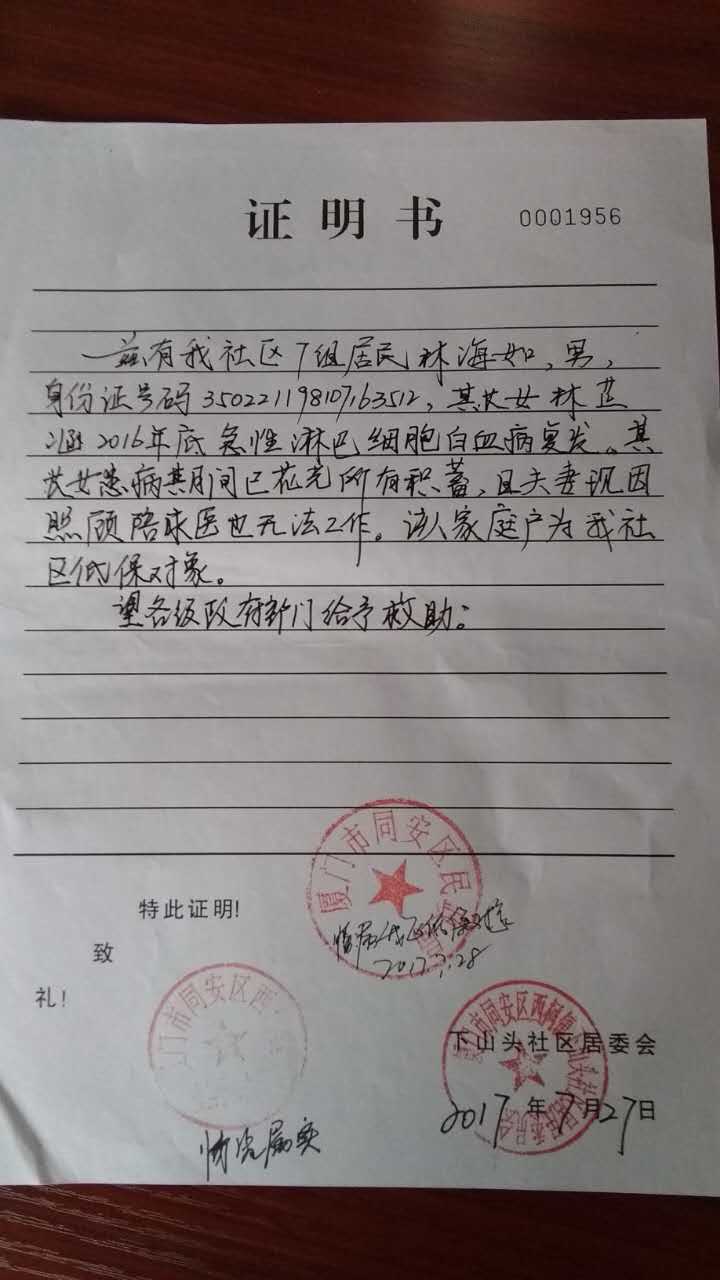 证明书 0001956
兹有我社区7组居民林海如,男,
身份证号码350221198107163512,其长女林芷
涵2016年底急性淋巴细胞白血病复发。其
长女患病其期间已花光所有积蓄,且夫妻现因
照顾陪求医也无法工作。该人家庭户为我社
区低保对象。
望各级政府部门给予救助。
厦门市同安区民
特此证明!
低保对象
2017.7.28
致
礼!
门市同安区西
厦门市同安区西柯镇下山头社区居民委员会
下山头社区居委会
2017年7月27日
情况属实